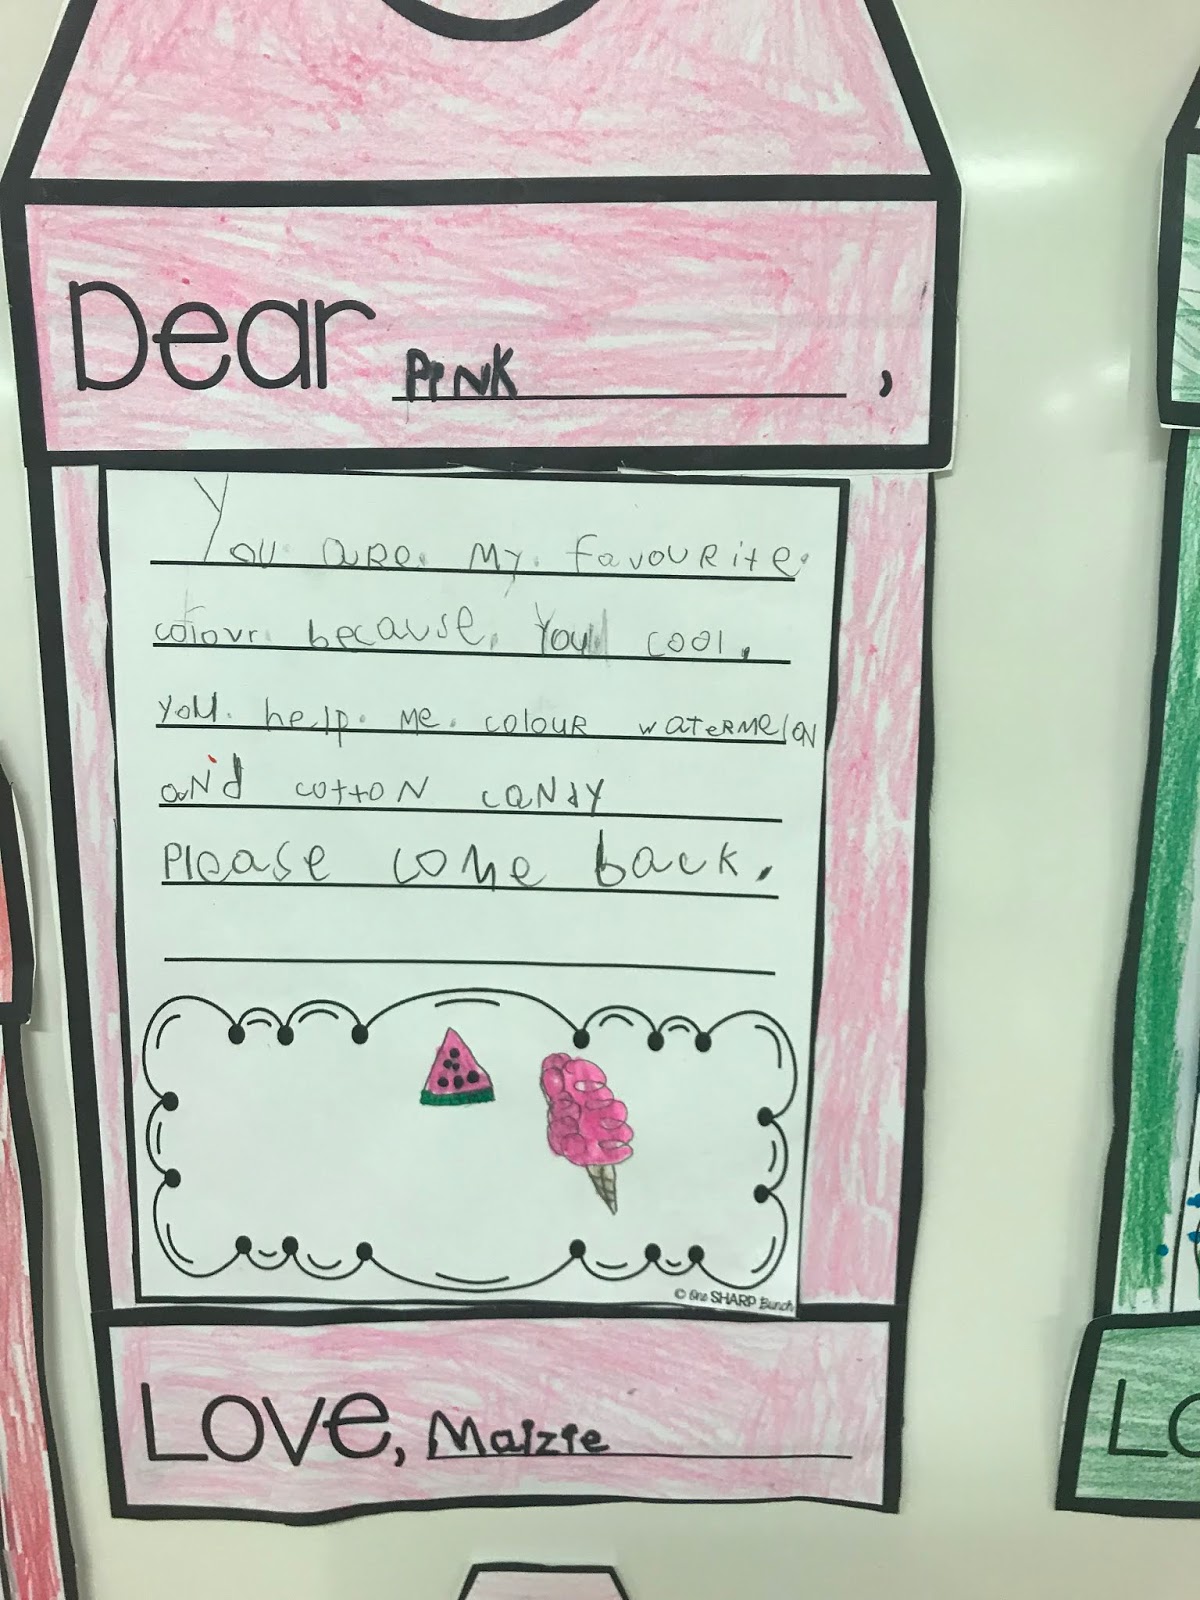 Dear PINK,
You are my favourite
colour because you cool.
you help me colour watermelon
and cotton candy
Please come back.
© One SHARP Bunch
Love, Maizie
Lo